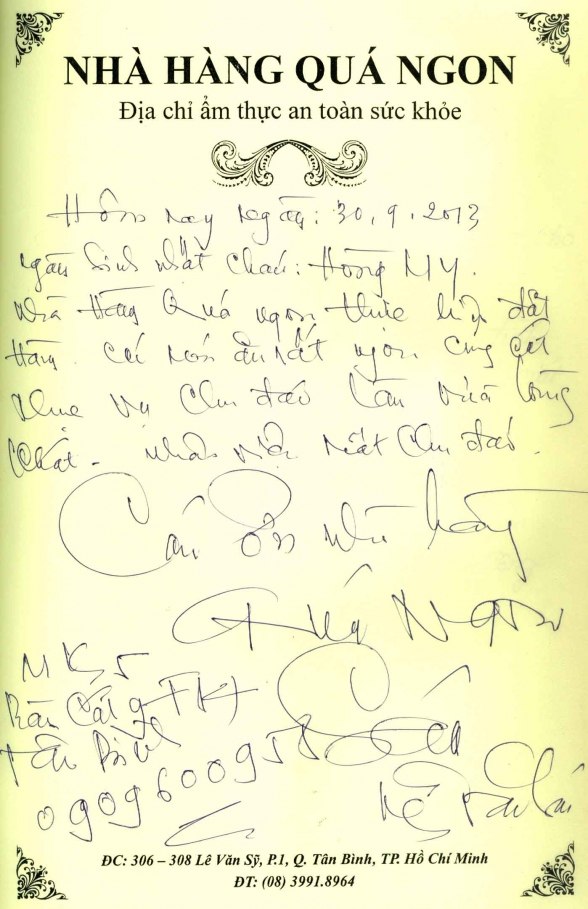 NHÀ HÀNG QUÁ NGON
Địa chỉ ẩm thực an toàn sức khỏe
Hôm nay ngày: 30.9.2013
ngày sinh nhật cháu: Hồng My.
Nhà Hàng Quá ngon thực hiện đặt
Hàng. các món ăn rất ngon. cung cách
phục vụ Chu đáo làm vừa lòng
khách. nhân viên rất Chu đáo.
Cảm Ơn Nhà hàng
Quá Ngon
Tân Bình
ĐC: 306 – 308 Lê Văn Sỹ, P.1, Q. Tân Bình, TP. Hồ Chí Minh
ĐT: (08) 3991.8964